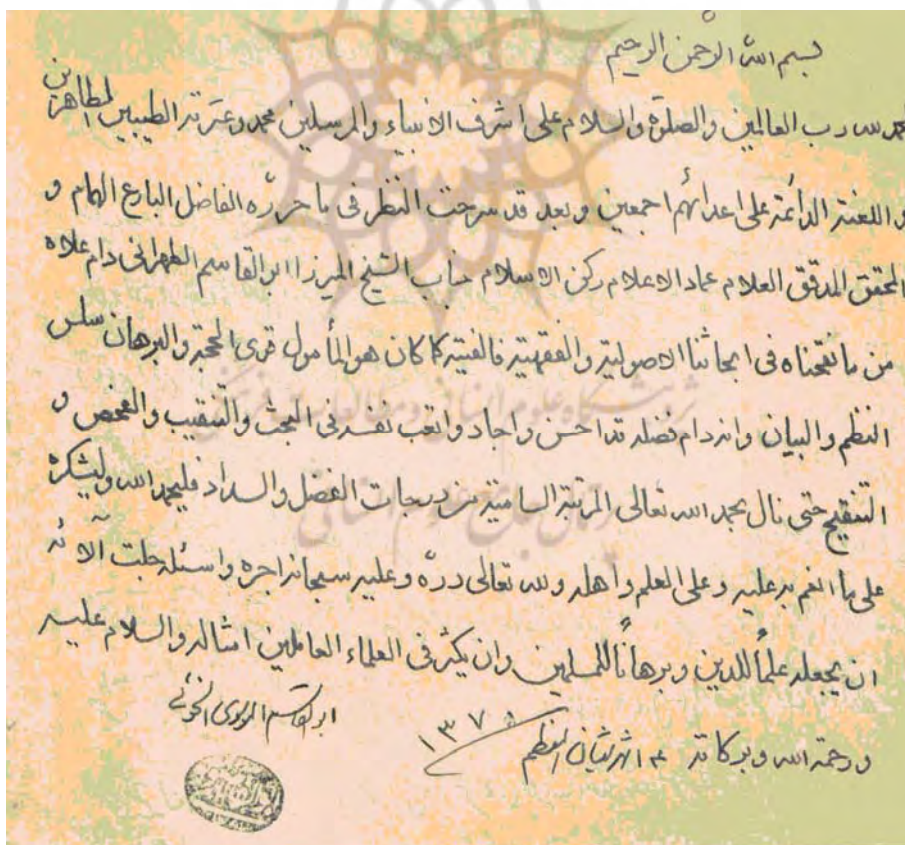 بسم الله الرحمن الرحيم
الحمد لله رب العالمين والصلوة والسلام على اشرف الانبياء والمرسلين محمد وعترته الطيبين الطاهرين
و اللعنة الدائمة على اعدائهم اجمعين و بعد قد سرحت النظر فى ما حرره الفاضل البارع الهمام و
المحقق المدقق العلام عماد الاعلام ركن الاسلام جناب الشيخ الميرزا ابو القاسم الطهرانى دام علاه
من ما نقحناه فى ابحاثنا الاصولية والفقهية فالفيته كما كان هو المأمول قوى الحجة والبرهان سلس
النظم والبيان وانه دام فضله قد احسن واجاد واتعب نفسه فى البحث والتنقيب والفحص و
التنقيح حتى نال بحمد الله تعالى المرتبة السامية من درجات الفضل والسداد فليحمد الله وليشكره
على ما انعم به عليه وعلى العلم واهله ولله تعالى درّه وعليه سبحانه اجره واسئله جلت آلائه
ان يجعله علماً للدين وبرهاناً للمسلمين وان يكثر فى العلماء العاملين امثاله والسلام عليه
و رحمة الله وبركاته شعبان المعظم ١٣٧٥
ابوالقاسم الموسوى الخوئى
پژوهشگاه علوم انسانی و مطالعات فرهنگی
پرتال جامع علوم انسانی